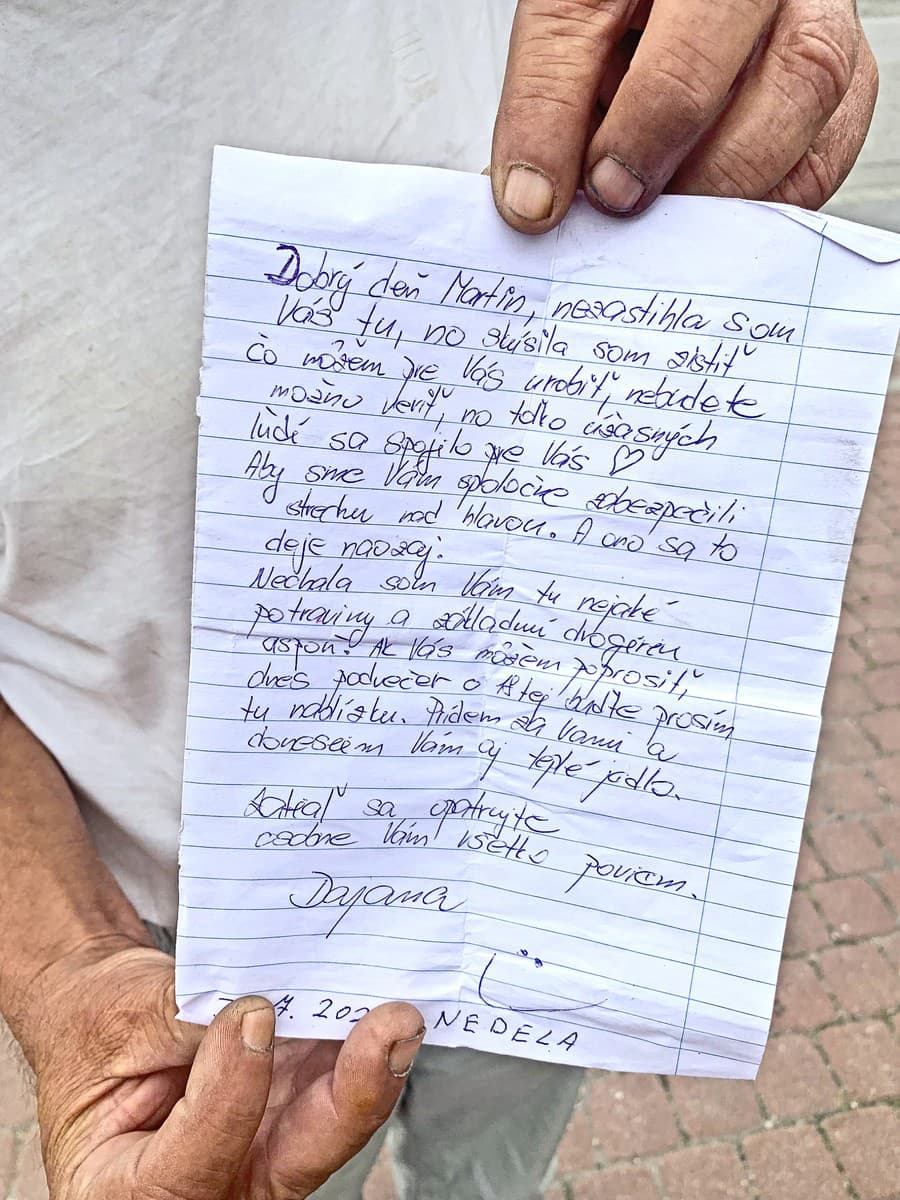 Dobrý deň Martin, nezastihla som
Vás tu, no skúsila som zistiť
čo môžem pre Vás urobiť, nebudete
možno veriť, no toľko úžasných
ľudí sa spojilo pre Vás ♡
Aby sme Vám spoločne zabezpečili
strechu nad hlavou. A ono sa to
deje naozaj.
Nechala som Vám tu nejaké
potraviny a základnú drogériu
aspoň. Ak Vás môžem poprosiť,
dnes podvečer o buďte prosím
tu nablízku. Prídem za Vami a
donesiem Vám aj teplé jedlo.
Zatiaľ sa opatrujte
osobne Vám všetko poviem.
Dajana
7. 202 NEDEĽA